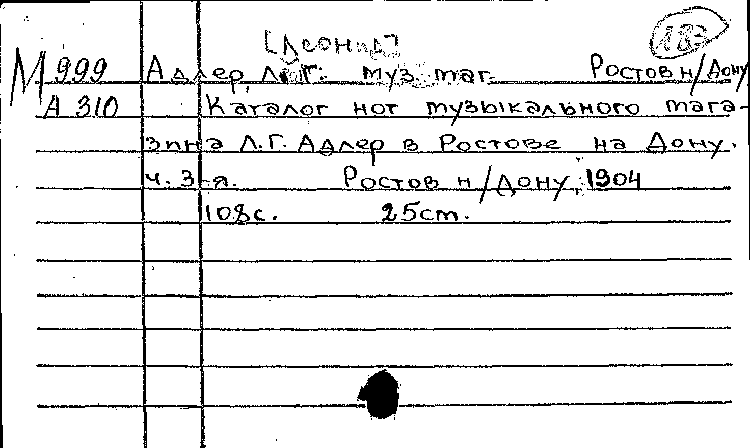 [Леонид] 187
М 999 Адлер, Л.Г. муз. маг. Ростов н/Дону
А 310 Каталог нот музыкального мага-
зина Л.Г. Адлер в Ростове на Дону.
ч. 3-я. Ростов н/Дону, 1904
108с. 25cm.